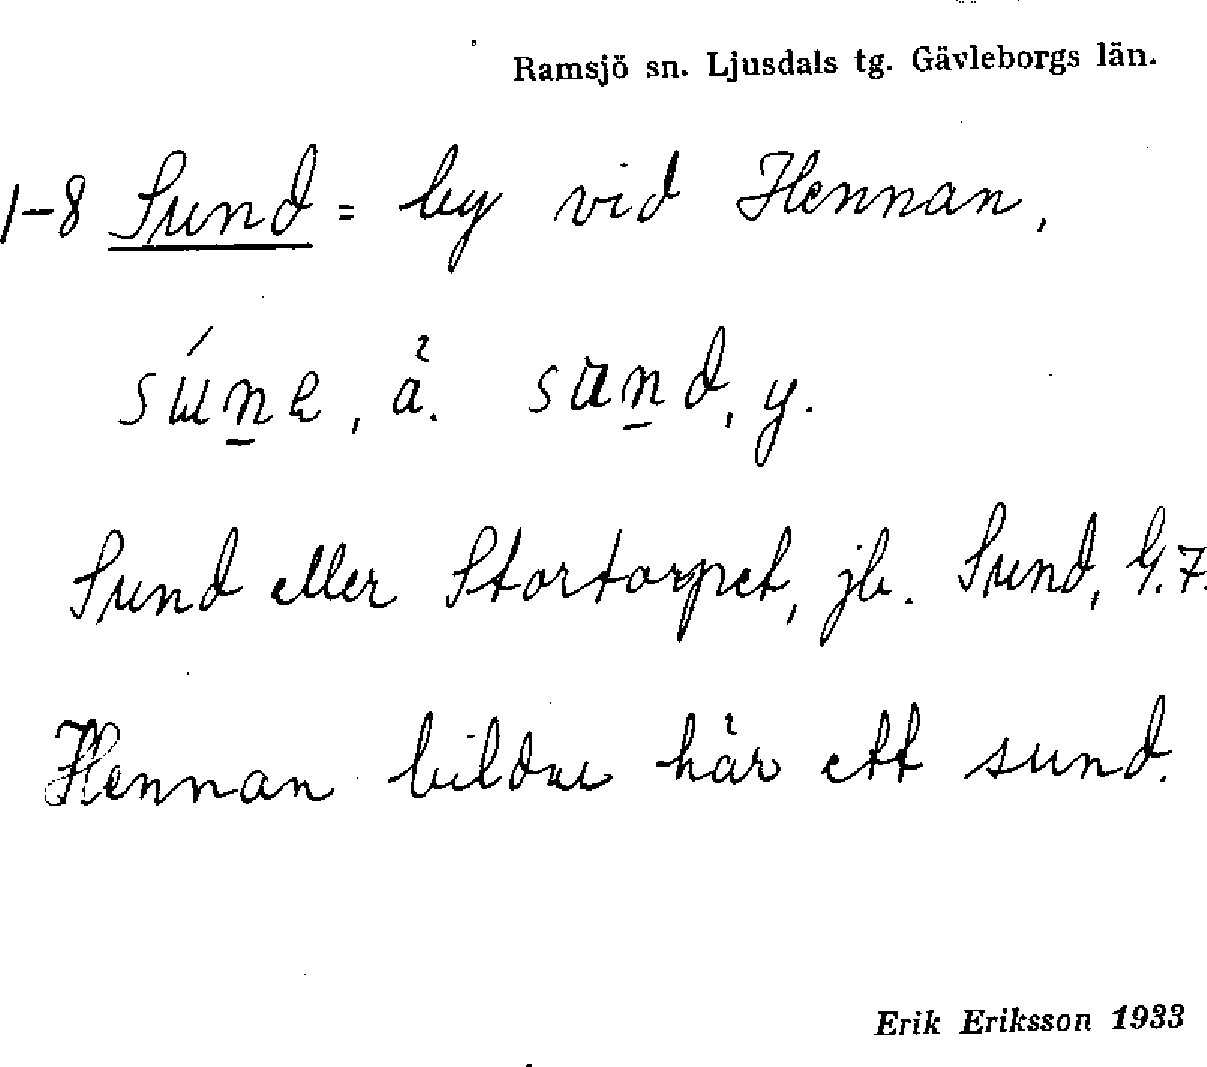 Ramsjö sn. Ljusdals tg. Gävleborgs län.
1-8 Sund = by vid Hennan,
, ä. , y.
Sund eller Stortorpet, jb. Sund, G.7.
Hennan bildar här ett sund.
Erik Eriksson 1933